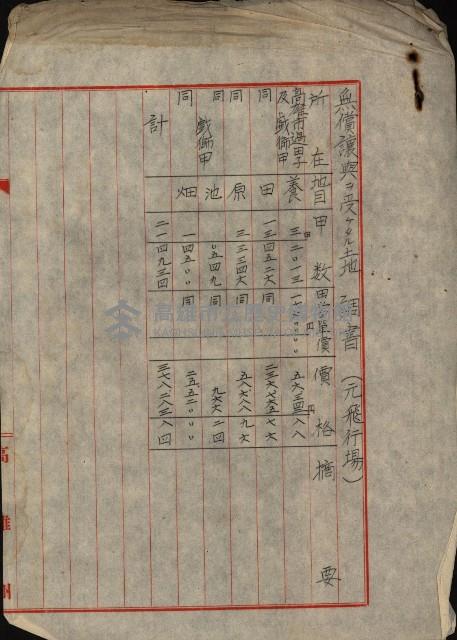 無償讓與ヲ受ケタル土地調書（元飛行場）
所在 地目 甲數 甲當單價 價格 摘要
高雄市過田子及戲獅甲 養 三二〇一三 一七六〇〇〇 五六三四二八八
同 田 一三四五二六 同 二三六七六五七六
同 原 三三三四六 同 五八六八八九六
同 戲獅甲 池 〇五四九 同 九六六二四
同 畑 一四五〇〇 同 二五五二〇〇〇
計 二一四九三四 三七八二八三八四
高雄州